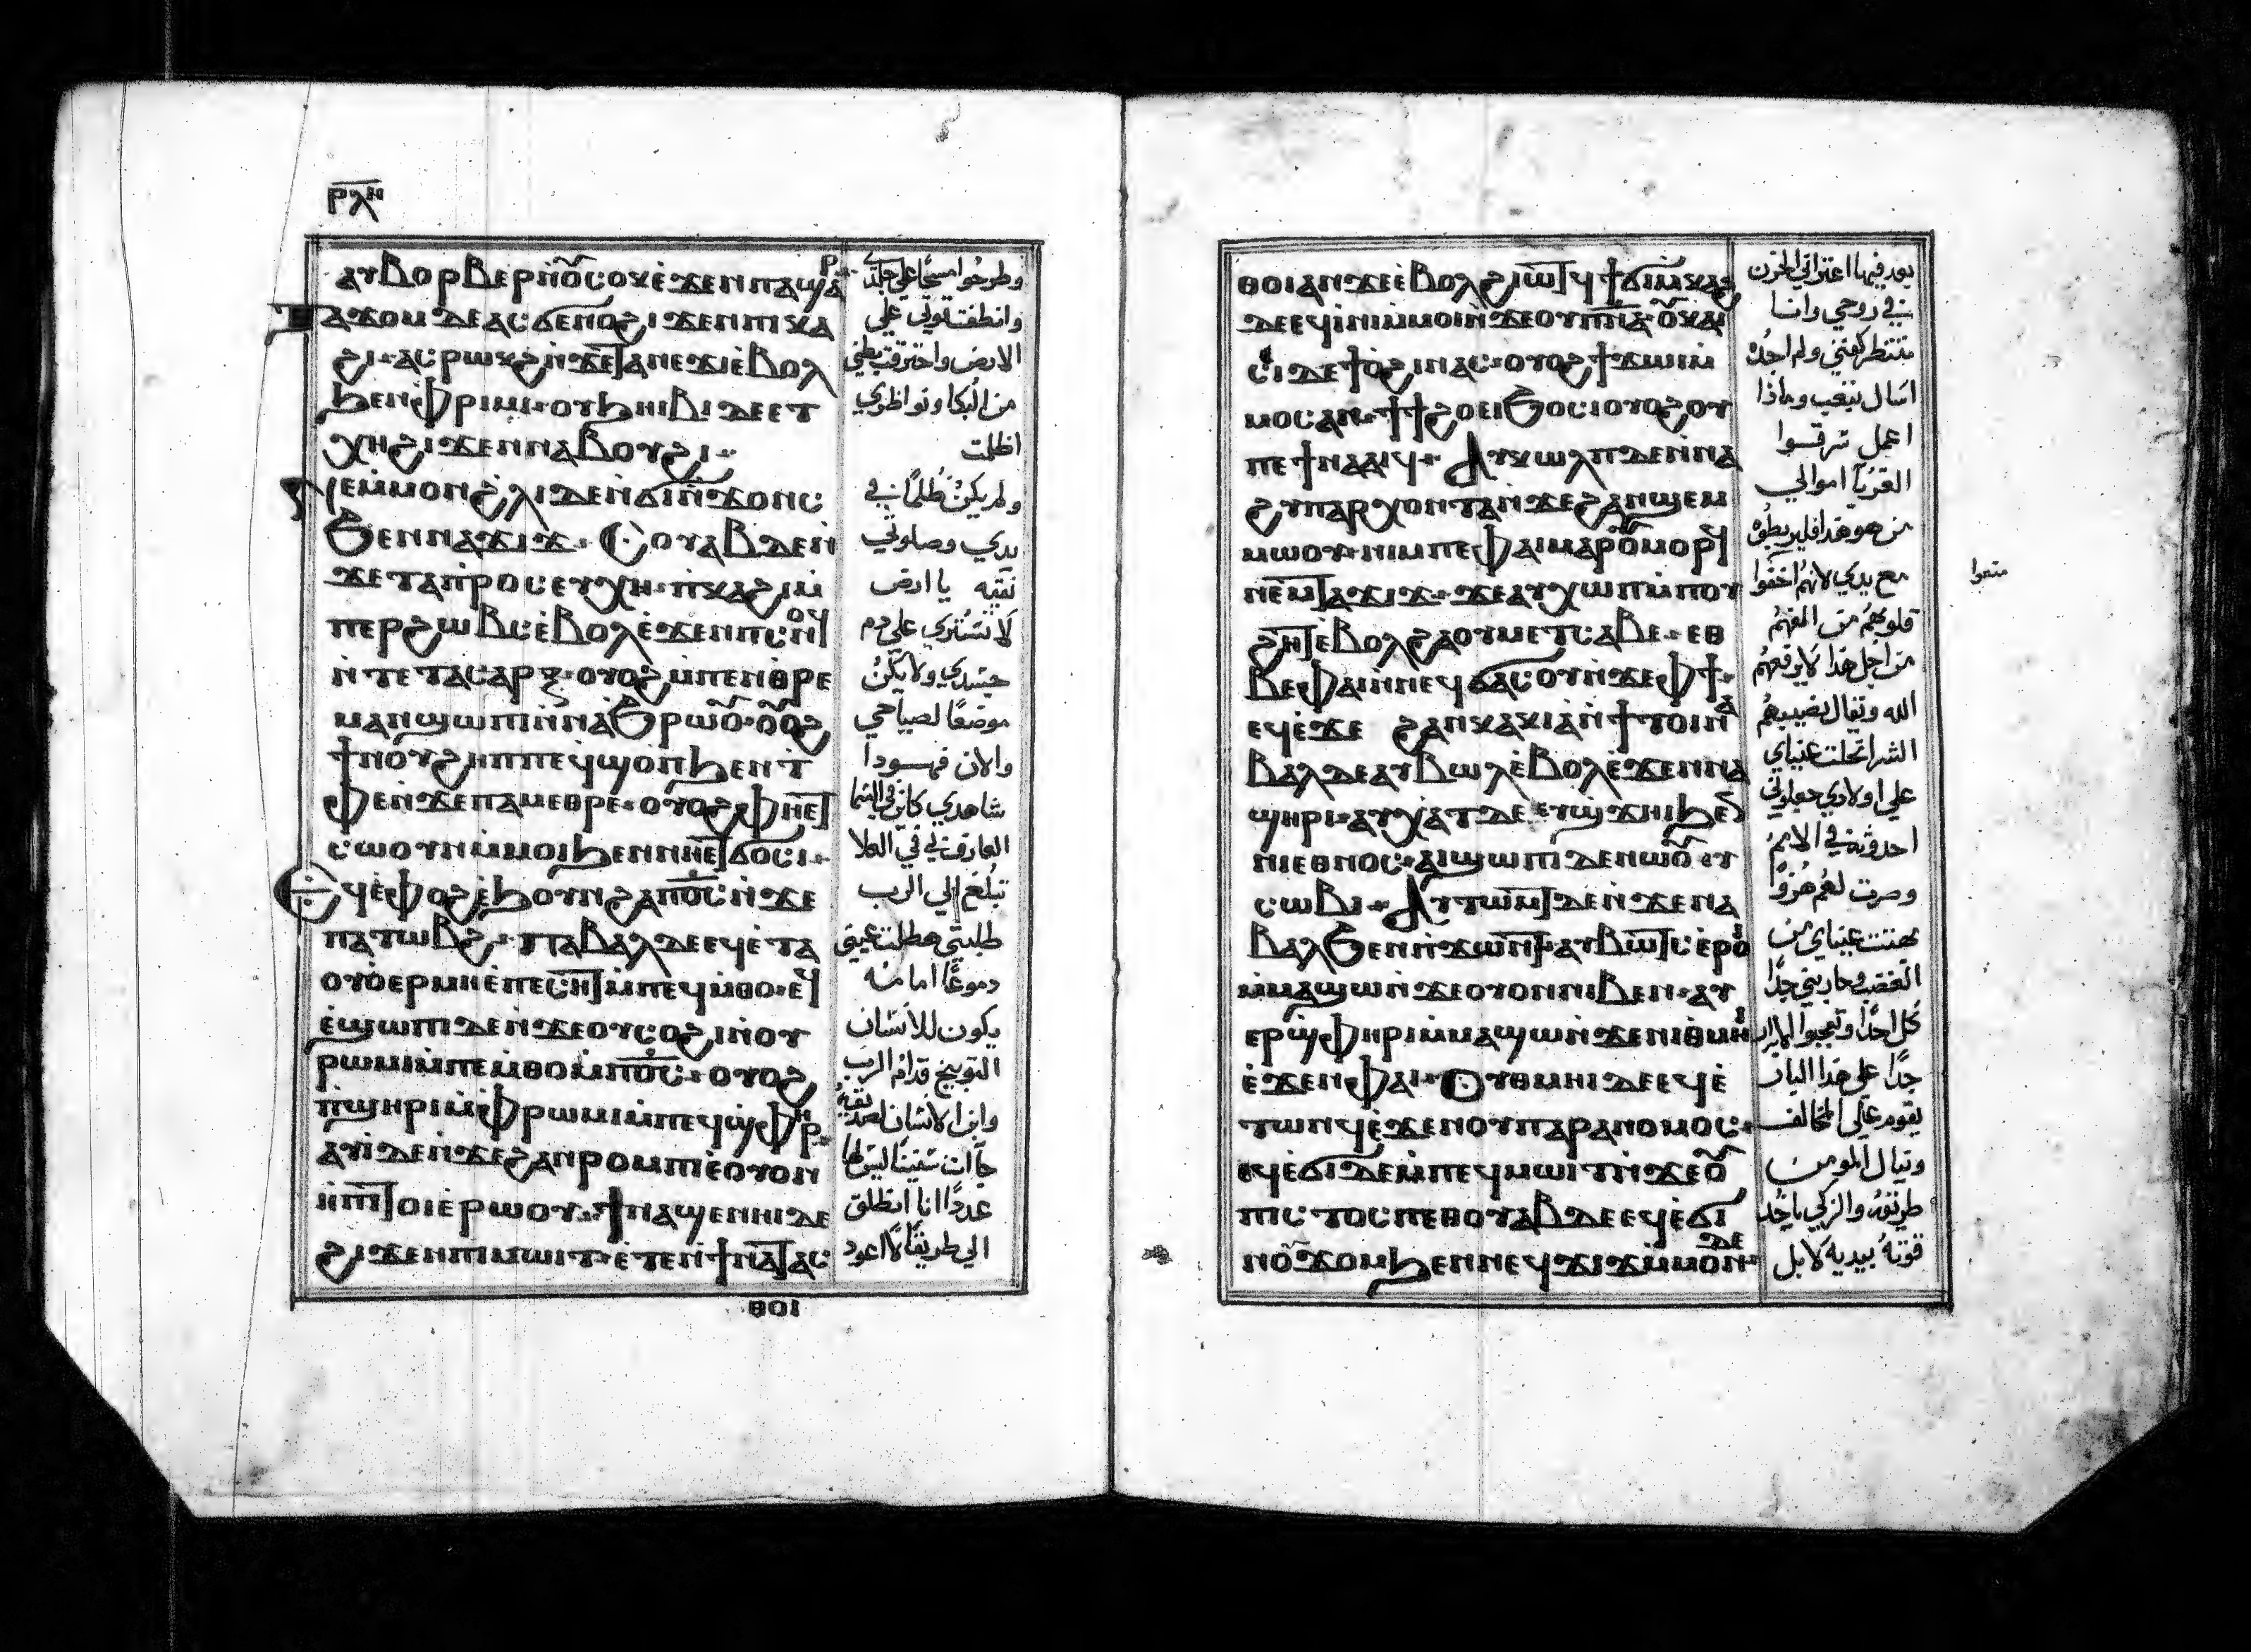 ⲣⲗⲏ
ⲁⲩⲃⲟⲣⲃⲉⲣⲛ̀ⲟⲩⲥⲟⲕ ⲉ̀ϫⲉⲛⲡⲁϣⲁⲣ
ⲧⲁϫⲟⲙ ⲇⲉ ⲁⲥϭⲉⲛⲟ ϩⲓϫⲉⲛⲡⲓⲕⲁ
ϩⲓ ⲁⲥⲣⲱⲕϩ ⲛ̀ϫⲉⲧⲁⲛⲉϫⲓ ⲉ̀ⲃⲟⲗ
ϧⲉⲛⲫⲣⲓⲙⲓ ⲟⲩϧⲏⲓⲃⲓ ⲇⲉ ⲉⲧ
ⲭⲏ ϩⲓϫⲉⲛⲛⲁⲃⲟⲩϩⲓ
ⲛⲉⲙ̀ⲙⲟⲛ ϩⲗⲓ ⲇⲉ ⲛ̀ϭⲓⲛ̀ϫⲟⲛⲥ
ϧⲉⲛⲛⲁϫⲓϫ ⲥⲟⲩⲁⲃ ⲇⲉ ⲛ̀
ϫⲉⲧⲁⲡⲣⲟⲥⲉⲩⲭⲏ ⲡ̀ⲕⲁϩⲓ ⲙ̀
ⲡⲉⲣϩⲱⲃⲥ ⲉ̀ⲃⲟⲗ ⲉ̀ϫⲉⲛⲡⲥⲛⲟϥ
ⲛ̀ⲧⲉⲧⲁⲥⲁⲣⲝ ⲟⲩⲟϩ ⲙ̀ⲡⲉⲛⲑⲣⲉ
ⲙⲁⲛϣⲱⲡⲓ ⲛ̀ⲛⲁϧⲣⲱⲟⲩ ⲟⲩⲟϩ
ϯⲛⲟⲩ ϩⲏⲡⲡⲉ ϥϣⲟⲡ ϧⲉⲛⲧ
ⲫⲉ ⲛ̀ϫⲉⲡⲁⲙⲉⲑⲣⲉ ⲟⲩⲟϩ ⲫⲏⲉⲧ
ⲥⲱⲟⲩⲛ ⲙ̀ⲙⲟⲓ ϧⲉⲛⲛⲏⲉⲧϭⲟⲥⲓ
ⲉϥⲉ̀ⲫⲟϩ ⲉ̀ϧⲟⲩⲛ ϩⲁⲡⲟ̅ⲥ̅ ⲛ̀ϫⲉ
ⲡⲁⲧⲱⲃϩ ⲡⲁⲃⲁⲗ ⲇⲉ ⲉϥⲉ̀ⲧⲁ
ⲟⲩⲟ̀ⲉⲣⲙⲏ ⲉ̀ⲡⲉⲥⲏⲧ ⲙ̀ⲡⲉϥⲙ̀ⲑⲟ ⲉϥ
ⲉ̀ϣⲱⲡⲓ ⲇⲉ ⲛ̀ϫⲉⲟⲩⲥⲟϩⲓ ⲛ̀ⲟⲩ
ⲣⲱⲙⲓ ⲙ̀ⲡⲉⲙ̀ⲑⲟ ⲙ̀ⲡⲟ̅ⲥ̅ ⲟⲩⲟϩ
ⲡϣⲏⲣⲓ ⲙ̀ⲫⲣⲱⲙⲓ ⲙ̀ⲡⲉϥϣ̀ⲫⲏⲣ
ⲁⲩⲓ̀ ⲇⲉ ⲛ̀ϫⲉϩⲁⲛⲣⲟⲙⲡⲓ ⲉ̀ⲟⲩⲟⲛ
ⲏⲡⲓ ⲧⲟⲓ ⲉ̀ⲣⲱⲟⲩ ϯⲛⲁϣⲉⲛⲏⲓ ⲇⲉ
ϩⲓϫⲉⲛⲡⲓⲙⲱⲓⲧ ⲉ̀ⲧⲉⲛϯⲛⲁⲧⲁⲥ
ⲑⲟⲓ
وطرحوا مسحا على جلدي
وانطفت قوتي على
الارض واحترقت بطني
من البكا ونواظري
اظلت
ولم يكن ظلما في
يدي وصلوتي
نقيه يا ارض
لا تستري على دم
جسدي ولا يكن
موضعا لصياحي
والان فهوذا
شاهدي كاين في السما
العارف بي في العلا
تبلغ الي الرب
طلبتي هطلت عيني
دموعا امامه
يكون للانسان
التوبيخ قدام الرب
وابن الانسان لصديقه
جآت سنينا ليس لها
عددا انا انطلق
الي طريقا لا اعود
ⲑⲟⲓ ⲁⲛ ϫⲉ ⲉ̀ⲃⲟⲗ ϩⲓⲱⲧϥ ϯϭⲓ ⲙ̀ⲕⲁϩ
ⲇⲉ ⲉϥⲓ̀ⲛⲓ ⲙ̀ⲙⲟⲓ ⲛ̀ϫⲉⲟⲩⲡ̅ⲛ̅ⲁ̅ ⲟⲩⲕⲁⲓ
ⲥⲓ ⲇⲉ ϯⲟϩⲓ ⲛⲁⲥ ⲟⲩⲟϩ ϯϫⲓⲙⲓ ⲙ̀
ⲙⲟⲥ ⲁⲛ ϯϯϩⲟ ⲉⲓϧⲟⲥⲓ ⲟⲩⲟϩ ⲟⲩ
ⲡⲉϯⲛⲁⲁⲓϥ ⲁⲩⲕⲱⲗⲡ ⲇⲉ ⲛ̀ⲛⲁ
ϩⲩⲡⲁⲣⲭⲟⲛⲧⲁ ⲛ̀ϫⲉϩⲁⲛϣⲉⲙ
ⲙⲱⲟⲩ ⲛⲓⲙ ⲡⲉ ⲫⲁⲓ ⲙⲁⲣⲟⲩⲙⲟⲣϥ
ⲛⲉⲙⲧⲁϫⲓϫ ϫⲉ ⲁⲩⲭⲱⲡ ⲙ̀ⲡⲟⲩ
ϩⲏⲧ ⲉ̀ⲃⲟⲗ ϩⲁⲟⲩⲙⲉⲧⲥⲁⲃⲉ ⲉⲑ
ⲃⲉⲫⲁⲓ ⲛ̀ⲛⲉϥϭⲁⲥⲟⲩ ⲛ̀ϫⲉⲫϯ
ⲉϥⲉ̀ϫⲉ ϩⲁⲛⲕⲁⲕⲓⲁ ⲛ̀ϯⲧⲟⲓ ⲛⲁ
ⲃⲁⲗ ⲇⲉ ⲁⲩⲃⲱⲗ ⲉ̀ⲃⲟⲗ ⲉ̀ϫⲉⲛⲛⲁ
ϣⲏⲣⲓ ⲁⲩⲭⲁⲧ ⲇⲉ ⲉⲩϣϫⲏⲓ ϧⲉⲛ
ⲛⲓⲉⲑⲛⲟⲥ ⲁⲓϣⲱⲡⲓ ⲇⲉ ⲛⲱⲟⲩ ⲉⲩ
ⲥⲱⲃⲓ ⲁⲩⲧⲱⲙⲧ ⲇⲉ ⲛ̀ϫⲉⲛⲁ
ⲃⲁⲗ ϧⲉⲛⲡ̀ϫⲱⲛⲧ ⲁⲩⲃⲱⲧⲥ ⲉ̀ⲣⲟⲓ
ⲙ̀ⲙⲁϣⲱ ⲛ̀ϫⲉⲟⲩⲟⲛ ⲛⲓⲃⲉⲛ ⲁⲩ
ⲉⲣϣ̀ⲫⲏⲣⲓ ⲙ̀ⲙⲁϣⲱ ⲛ̀ϫⲉⲛⲓⲑⲙⲏⲓ
ⲉ̀ϫⲉⲛⲫⲁⲓ ⲟⲩⲑⲙⲏⲓ ⲇⲉ ⲉϥⲉ̀
ⲧⲱⲛϥ ⲉ̀ϫⲉⲛⲟⲩⲡⲁⲣⲁⲛⲟⲙⲟⲥ
ⲉϥⲉ̀ϭⲓ ⲇⲉ ⲙ̀ⲡⲉϥⲙⲱⲓⲧ ⲛ̀ϫⲉⲟⲩ
ⲡⲓⲥⲧⲟⲥ ⲡⲉⲑⲟⲩⲁⲃ ⲇⲉ ⲉϥⲉ̀ϭⲓ
ⲛⲟⲩϫⲟⲙ ϧⲉⲛⲛⲉϥϫⲓϫ ⲙ̀ⲙⲟⲛ ⲇⲉ
بعد فيها اعتراني الحزن
في روحي وانا
منتظر كفني ولم اجده
اسال بتعب وماذا
اعمل سرقوا
الغربآ اموالي
من هو هذا فليربطوه
مع يدي لانهم اخفوا
متعوا
قلوبهم من الفهم
من اجل هذا لا يرفعهم
الله وتقال نصيبهم
الشر انحلت عيناي
على اولادي جعلوني
احدوثة في الامم
وصرت لهم هزوا
بهتت عيناي من
الغضب وحاربني جدا
كل احد وتعجبوا الابرار
جدا على هذا البار
يقوم على المخالف
وينال المومن
طريقه والزكي ياخذ
قوته بيديه لا بل